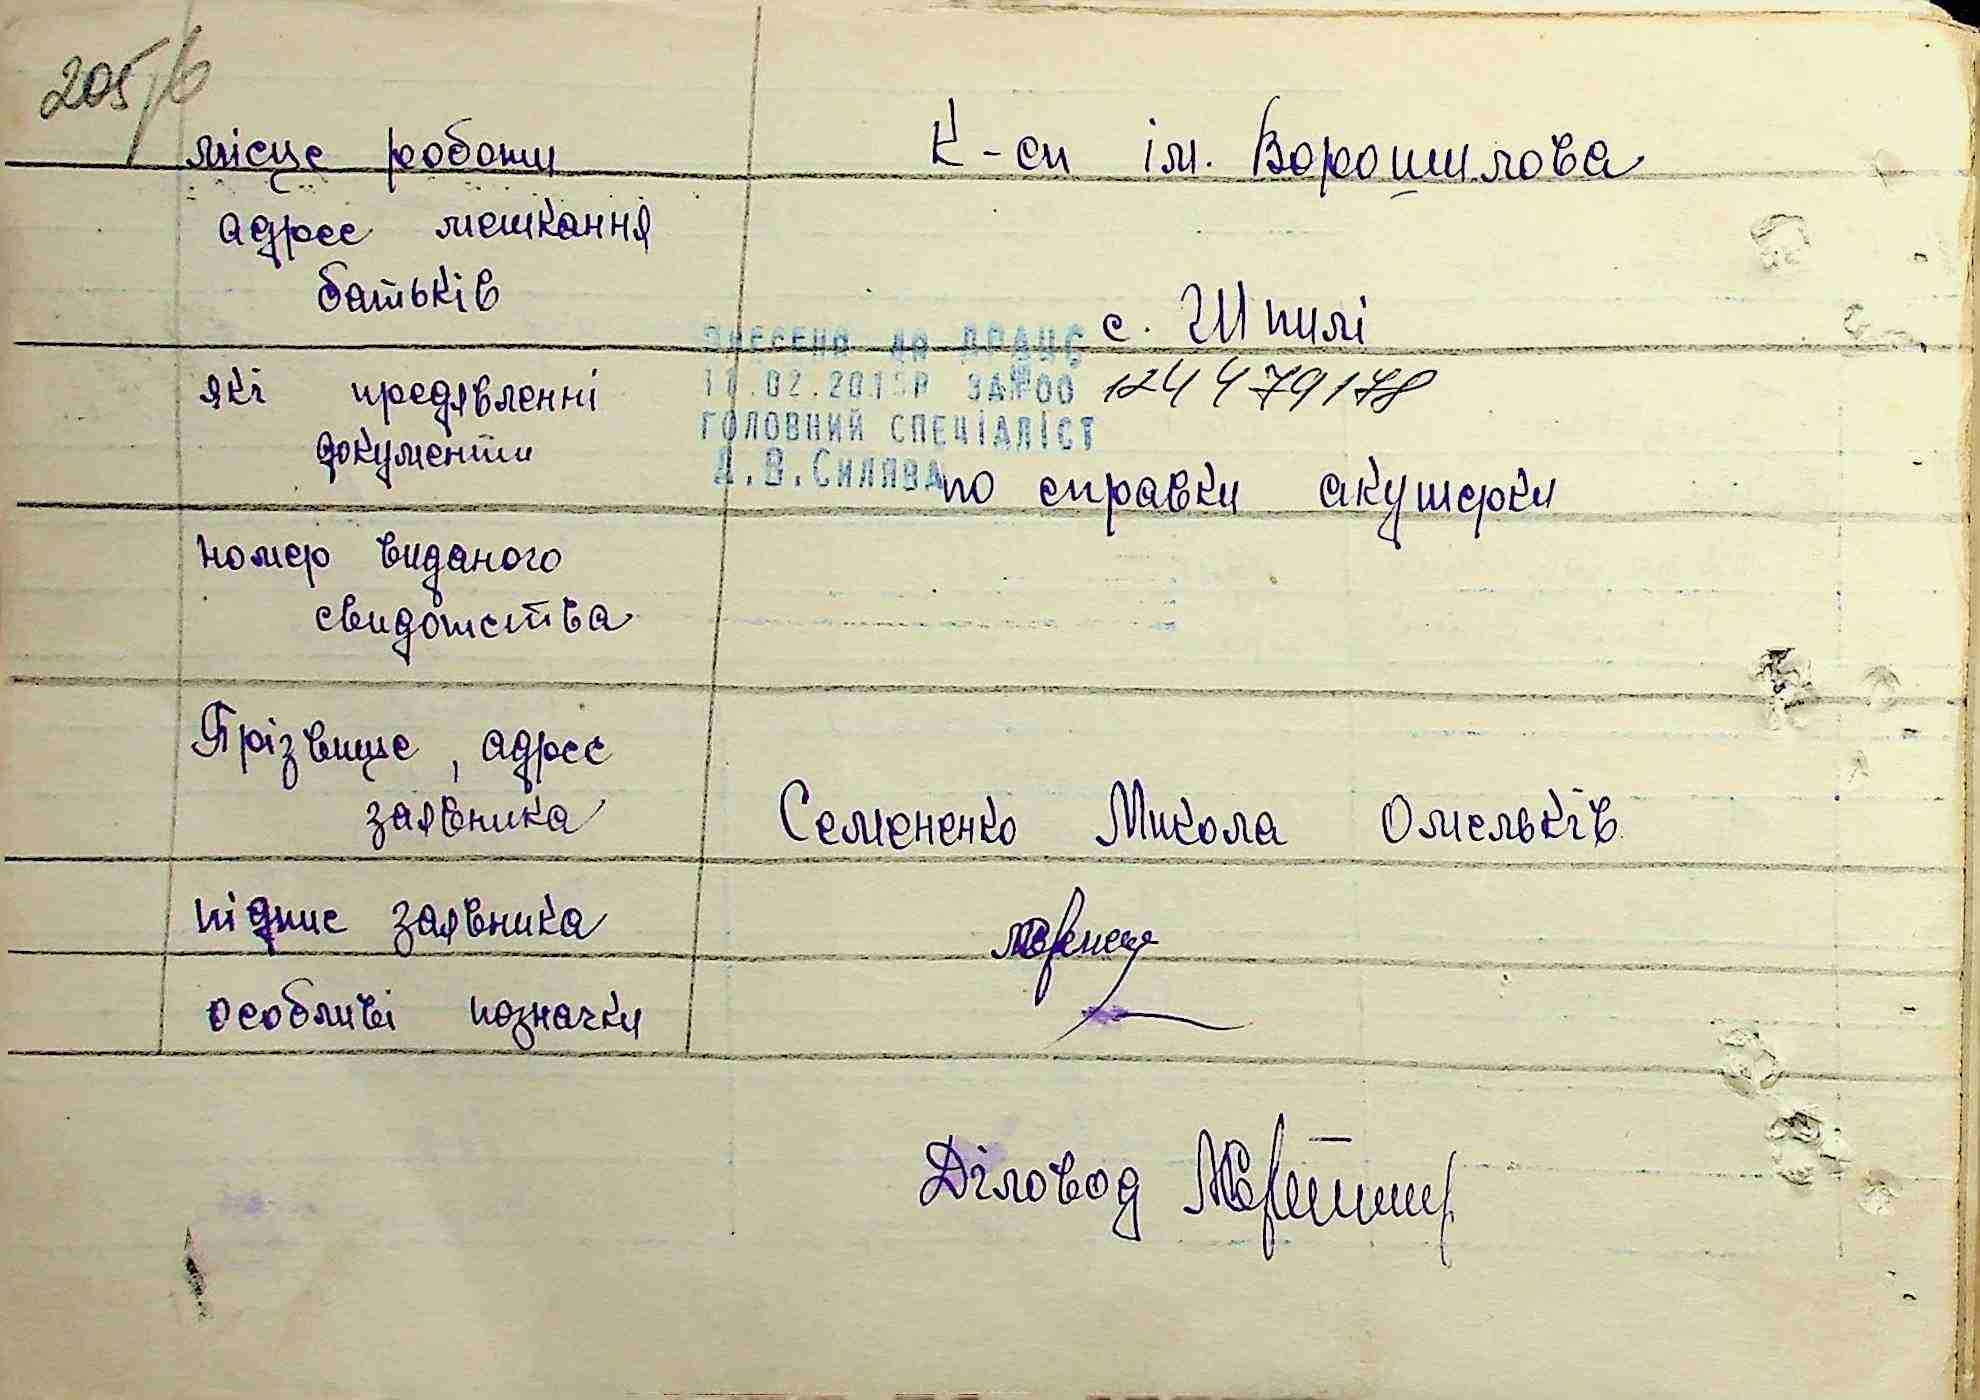 205/6
місце роботи К-сп ім. Ворошилова
адрес мешкання
батьків с. Шпилі
ВНЕСЕНО ДО ДРАЦС
які предявленні 17.02.2015Р ЗА№00 124479178
документи ГОЛОВНИЙ СПЕЦІАЛІСТ
Д.В.СИЛЯВА по справки акушерки
номер виданого
свидотства
Прізвище, адрес
заявника Семененко Микола Омельків
підпис заявника
особливі позначки
Діловод